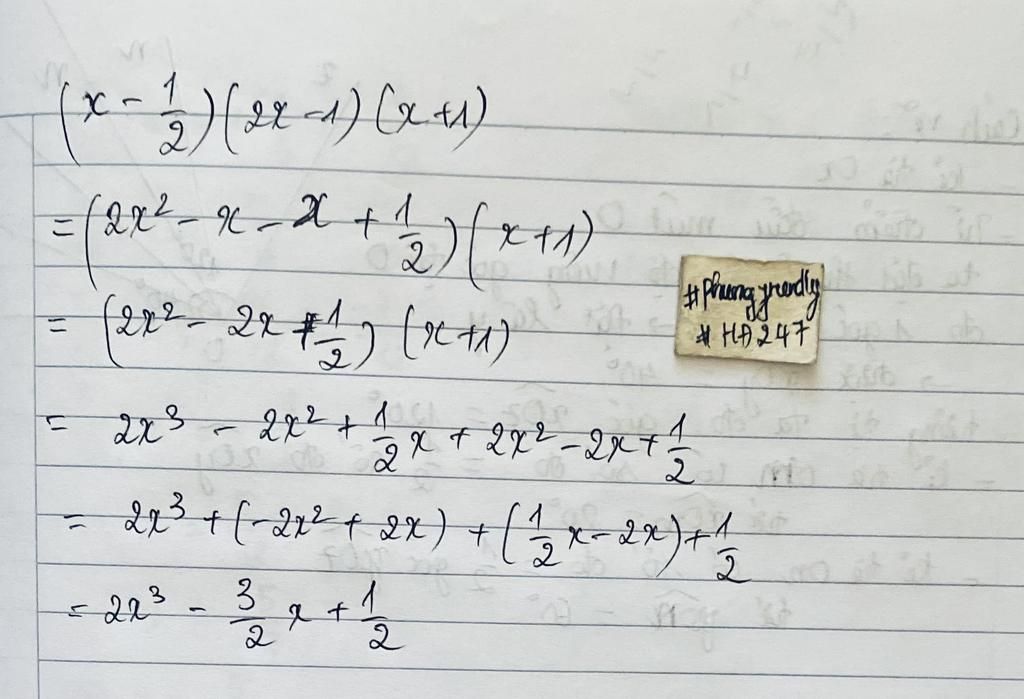 (x - 1/2)(2x - 1)(x + 1)
= (2x² - x - x + 1/2)(x + 1)
= (2x² - 2x + 1/2)(x + 1)
= 2x³ - 2x² + 1/2 x + 2x² - 2x + 1/2
= 2x³ + (-2x² + 2x) + (1/2 x - 2x) + 1/2
= 2x³ - 3/2 x + 1/2
# HĐ247